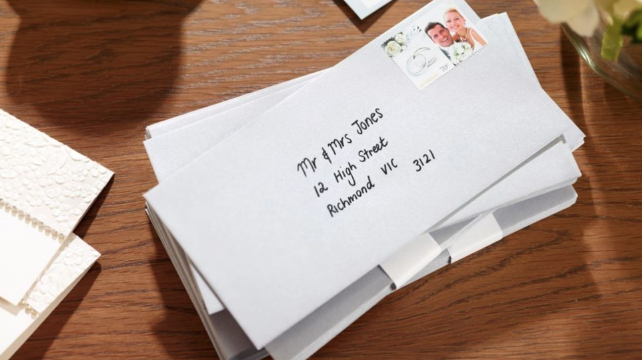 Mr & Mrs Jones
12 High Street
Richmond VIC 3121